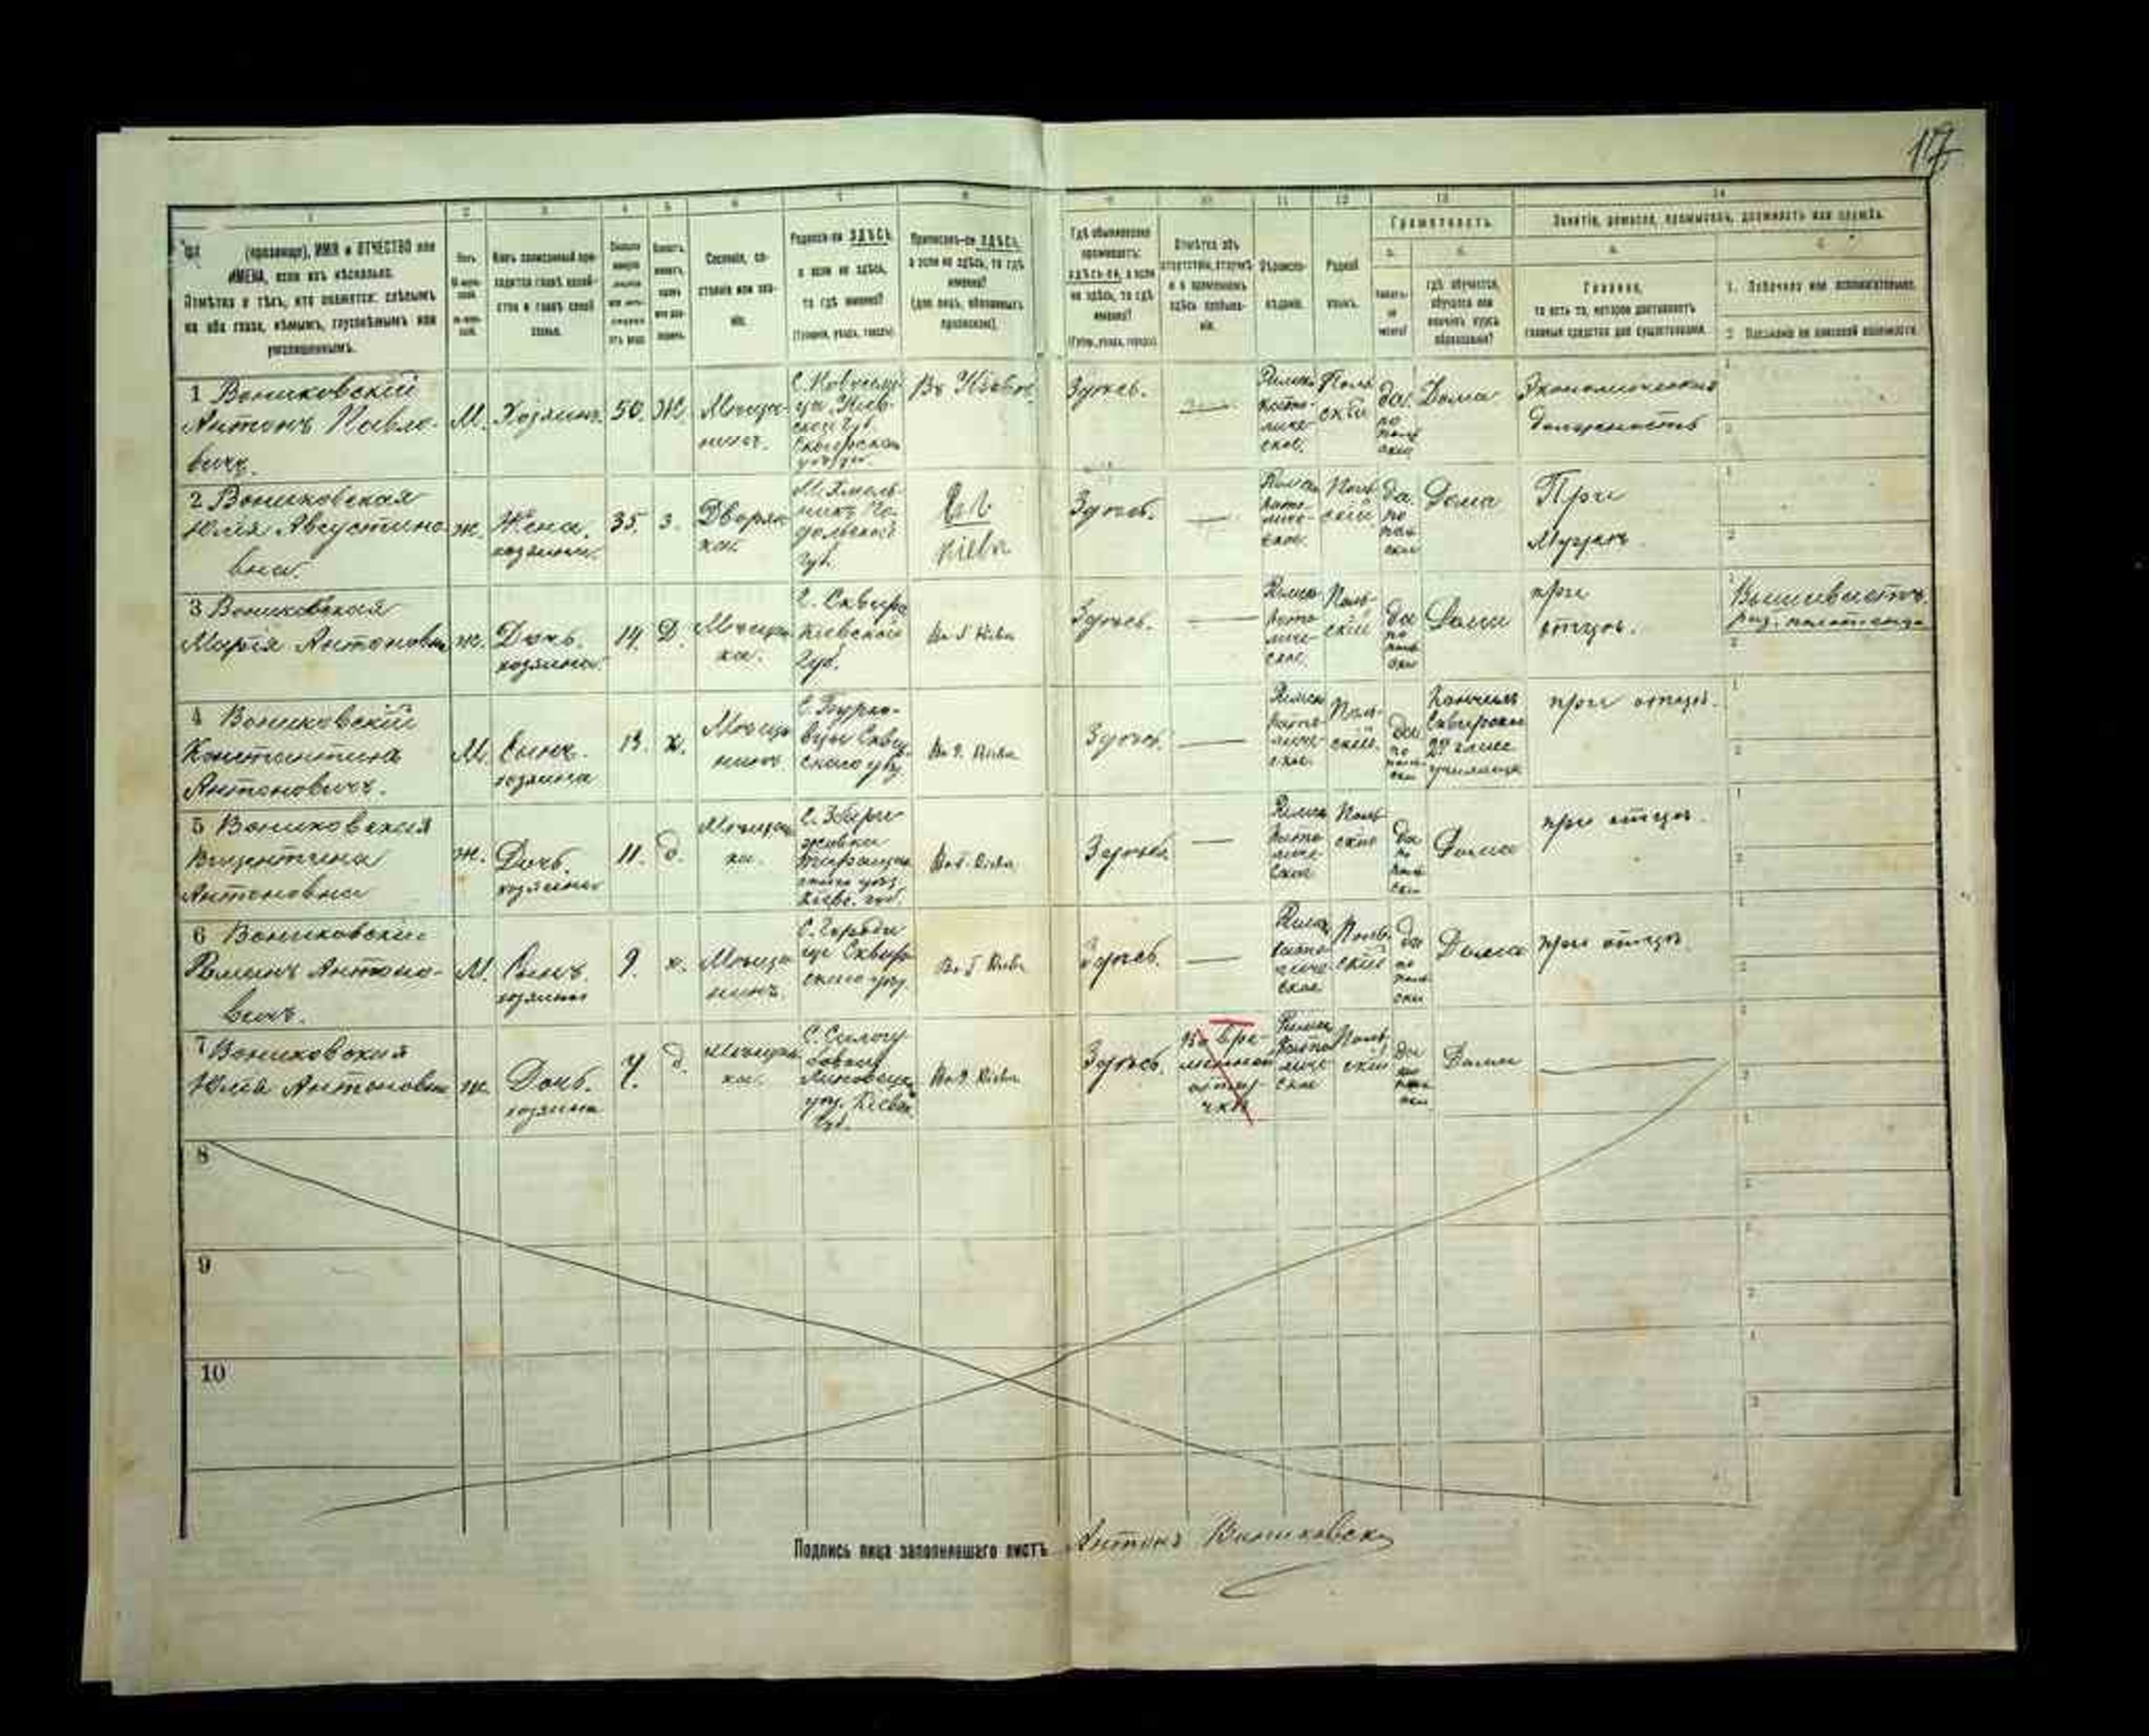 17
1 2 3 4 5 6 7 8 9 10 11 12 13 14
(прозвище), ИМЯ и ОТЧЕСТВО или
ИМЕНА, если ихъ нѣсколько.
Отмѣтка о тѣхъ, кто окажется: слѣпымъ
на оба глаза, нѣмымъ, глухонѣмымъ или
умалишеннымъ.
Полъ.
Какъ записанный при-
ходится главѣ хозяй-
ства и главѣ своей
семьи.
Сословіе, со-
стояніе или зва-
ніе.
Родился-ли ЗДѢСЬ,
а если не здѣсь,
то гдѣ именно?
(Губернія, уѣздъ, городъ).
Приписанъ-ли ЗДѢСЬ,
а если не здѣсь, то гдѣ
именно?
(для лицъ, обязанныхъ
припискою).
Гдѣ обыкновенно
проживаетъ:
здѣсь-ли, а если
не здѣсь, то гдѣ
именно?
(Губер., уѣздъ, городъ).
Отмѣтка объ
отсутствіи, отлучкѣ
и о временномъ
здѣсь пребыва-
ніи.
Вѣроиспо-
вѣданіе.
Родной
языкъ.
Грамотность.
а. б.
Умѣетъ-
ли
читать?
гдѣ обучается,
обучался или
кончилъ курсъ
образованія?
Занятіе, ремесло, промыселъ, должность или служба.
Главное,
то есть то, которое доставляетъ
главныя средства для существованія.
1. Побочное или вспомогательное.
2. Положеніе по воинской повинности.
1 Вониковскій
Антонъ Павло-
вичъ.
М. Хозяинъ. 50. Ж. Мѣща-
нинъ.
Въ Кіевѣ
Здѣсь.
Римско
като-
личе-
ское.
Поль
скій
да.
по
поль
ски
Дома
Экономическая
должность
2 Вониковская
Юлія Августино
вна.
ж. Жена.
хозяина. 35. з. Дворян
ка.
М. Хмель-
никъ По-
дольской
Губ.
Въ г.
Кіевѣ
Здѣсь.
Римско
като-
личе-
ское.
Поль
скій
да.
по
поль
ски
Дома
При
Мужѣ.
3 Вониковская
Марія Антоновна
ж. Дочь.
хозяина. 14. Д. Мѣщан
ка.
Г. Сквира
Кіевской
Губ.
Въ г. Кіевѣ
Здѣсь.
Римско
като
личе-
ское.
Поль-
скій
да
по
поль
ски
Дома
при
отцѣ.
4 Вониковскій
Константинъ
Антоновичъ.
М. Сынъ.
хозяина 13. х. Мѣща
нинъ
Въ г. Кіевѣ
Здѣсь.
Римско
като-
личе-
ское.
Поль-
скій.
да
по
поль-
ски
Кончилъ
Сквирское
2х класс
училище
при отцѣ.
5 Вониковская
Викентина
Антоновна
ж. Дочь.
хозяина 11. д. Мѣщан
ка.
Въ г. Кіевѣ
Здѣсь
Римско
като
личе
ское
Поль
скій
да
по
поль
ски
Дома
при отцѣ.
6 Вониковскій
Романъ Антоно-
вичъ.
М. Сынъ.
хозяина 9. х. Мѣща
нинъ.
С. Городи
ще Сквир
скаго уѣз.
Въ г. Кіевѣ
Здѣсь.
Римско
като
личе
ское
Поль.
скій
да
по
поль
ски
Дома
при отцѣ.
7 Вониковская
Юлія Антоновна
ж. Дочь.
хозяина 7. д. Мѣщан
ка.
Въ г. Кіевѣ
Здѣсь.
Во вре-
менной
отлу-
чкѣ
Римско
като
личе
ское
Поль
скій
да
по
поль
ски
Дома
8
9
10
Подпись лица заполнявшаго листъ Антонъ Вониковскій